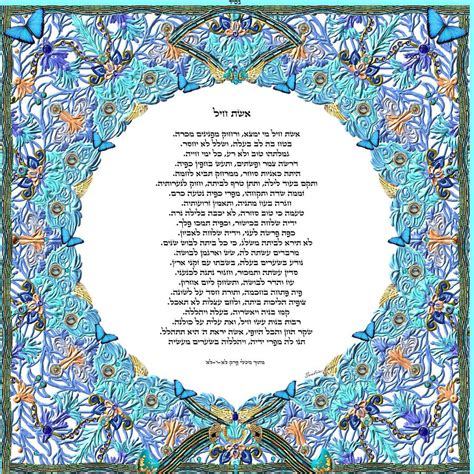 בס״ד
אשת חיל
אשת חיל מי ימצא, ורחוק מפנינים מכרה.
בטח בה לב בעלה, ושלל לא יחסר.
גמלתהו טוב ולא רע, כל ימי חייה.
דרשה צמר ופשתים, ותעש בחפץ כפיה.
היתה כאניות סוחר, ממרחק תביא לחמה.
ותקם בעוד לילה, ותתן טרף לביתה, וחוק לנערותיה.
זממה שדה ותקחהו, מפרי כפיה נטעה כרם.
חגרה בעוז מותניה, ותאמץ זרועותיה.
טעמה כי טוב סחרה, לא יכבה בלילה נרה.
ידיה שלחה בכישור, וכפיה תמכו פלך.
כפה פרשה לעני, וידיה שלחה לאביון.
לא תירא לביתה משלג, כי כל ביתה לבוש שנים.
מרבדים עשתה לה, שש וארגמן לבושה.
נודע בשערים בעלה, בשבתו עם זקני ארץ.
סדין עשתה ותמכור, וחגור נתנה לכנעני.
עוז והדר לבושה, ותשחק ליום אחרון.
פיה פתחה בחכמה, ותורת חסד על לשונה.
צופיה הליכות ביתה, ולחם עצלות לא תאכל.
קמו בניה ויאשרוה, בעלה ויהללה.
רבות בנות עשו חיל, ואת עלית על כולנה.
שקר החן והבל היופי, אשה יראת ה היא תתהלל.
תנו לה מפרי ידיה, ויהללוה בשערים מעשיה
מתוך משלי פרק לא-י-לא